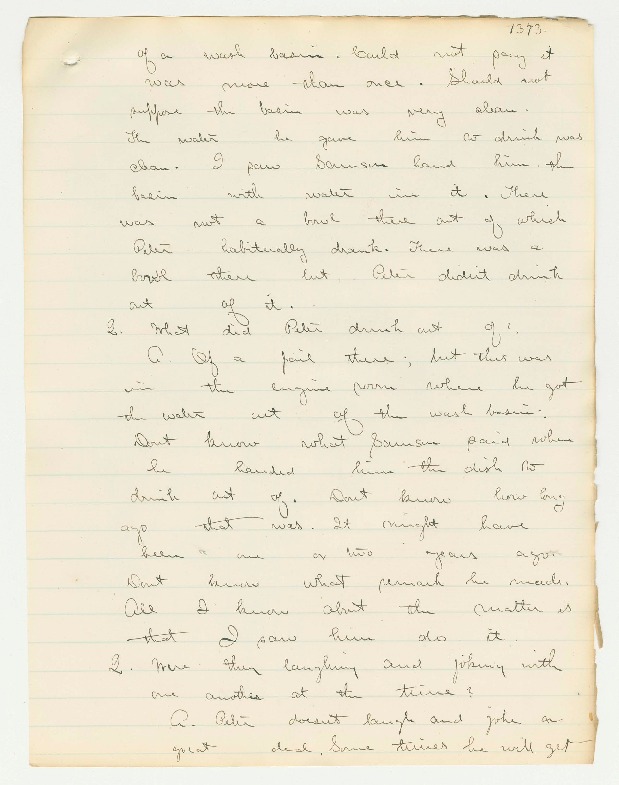 1373.
of a wash basin. Could not say it
was more than once. Should not
suppose the basin was very clean.
The water he gave him to drink was
clean. I saw Samson hand him the
basin with water in it. There
was not a bowl there out of which
Peter habitually drank. There was a
bowl there but Peter didn't drink
out of it.
Q. What did Peter drink out of?
A. Of a pail there; but this was
in the engine room where he got
the water out of the wash basin.
Dont know what Samson said when
he handed him the dish to
drink out of. Dont know how long
ago that was. It might have
been one or two years ago.
Dont know what remark he made.
All I know about the matter is
that I saw him do it.
Q. Were they laughing and joking with
one another at the time?
A. Peter doesn't laugh and joke a
great deal. Some times he will get